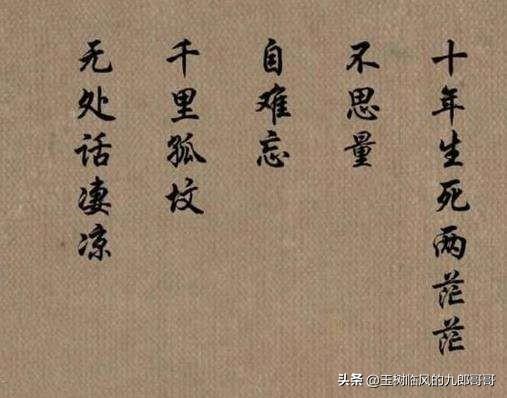 十年生死两茫茫
不思量
自难忘
千里孤坟
无处话凄凉
头条 @玉树临风的九郎哥哥